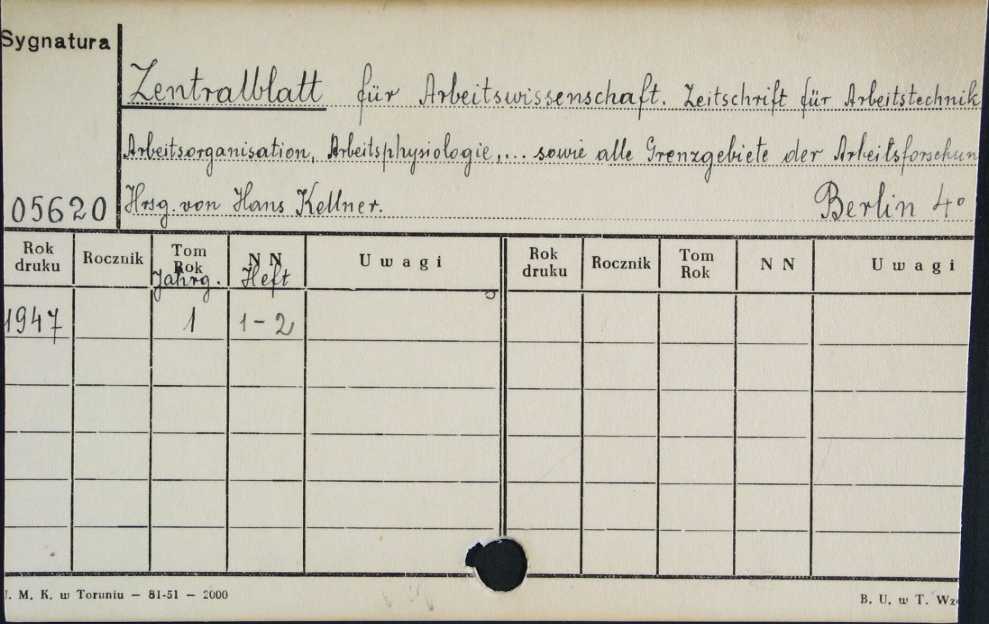 Sygnatura
Zentralblatt für Arbeitswissenschaft. Zeitschrift für Arbeitstechnik
Arbeitsorganisation, Arbeitsphysiologie,... sowie alle Grenzgebiete der Arbeitsforschun
05620 Hrsg. von Hans Kellner. Berlin 4°
Rok druku Rocznik Tom Rok N N U w a g i Rok druku Rocznik Tom Rok N N U w a g i
Jahrg. Heft
1947 1 1-2
. M. K. w Toruniu — 81-51 — 2000 B. U. w T. Wz